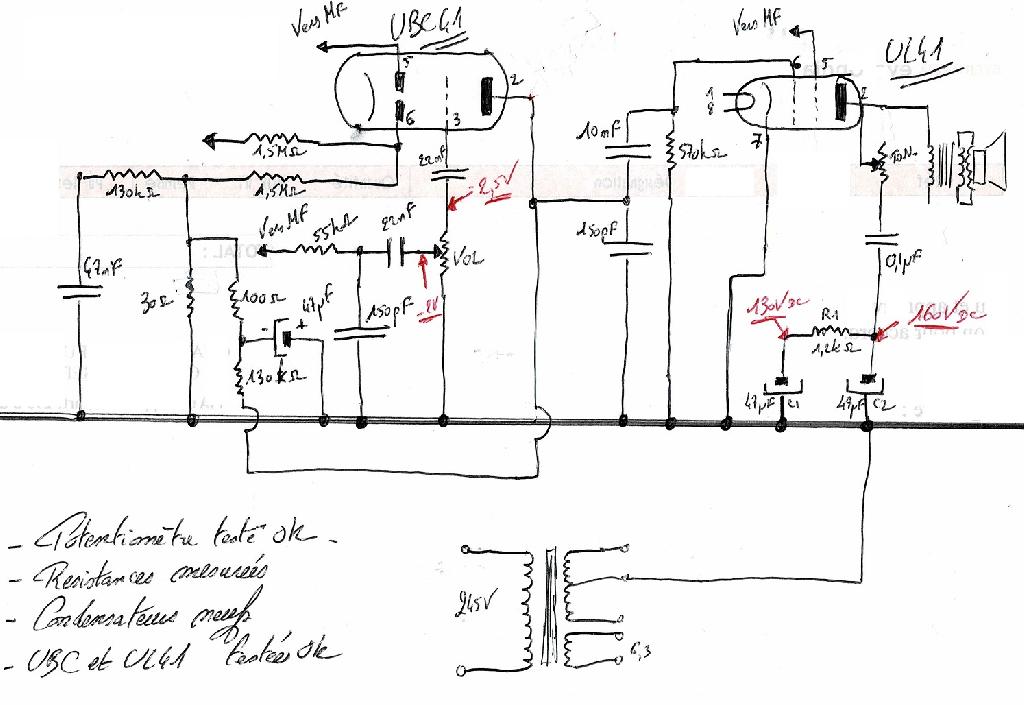 Vers MF
UBC41
5
2
6
3
1,5MΩ
130kΩ
1,5MΩ
22nF
-2,5V
Vers MF
55kΩ
22nF
VOL
-2V
47nF
30Ω
100Ω
47µF
- +
150pF
130kΩ
Vers MF
UL41
6
5
1
8
2
7
10nF
570kΩ
150pF
0,1µF
130VDC
R1
1,2kΩ
160VDC
47µF C1
47µF C2
245V
6,3
- Potentiomètre testé OK.
- Résistances mesurées
- Condensateurs neufs
- UBC et UL41 testées OK